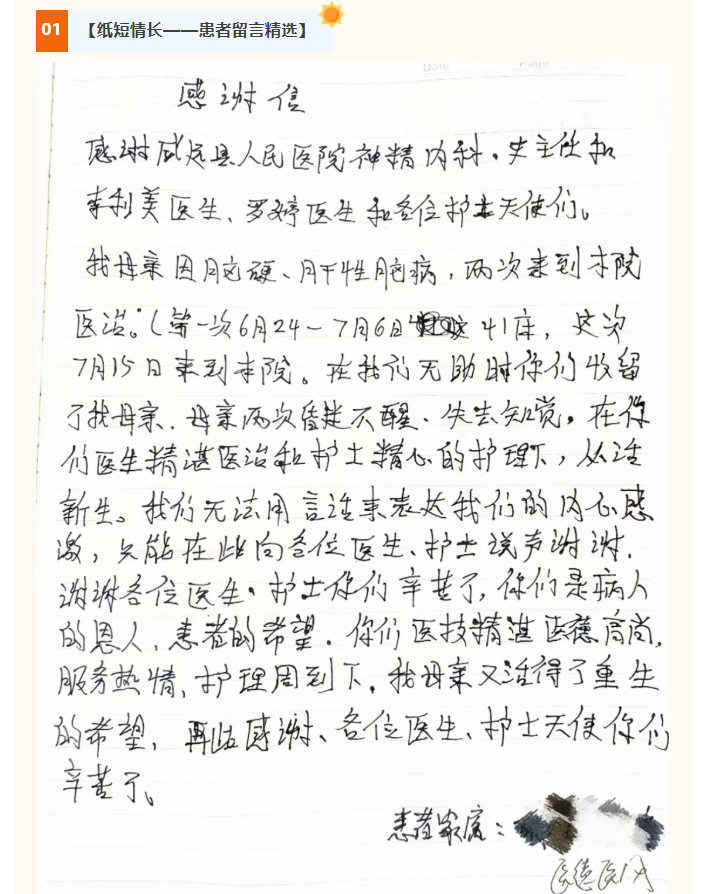 01 【纸短情长——患者留言精选】
Date Page
感谢信
感谢威远县人民医院神精内科、史主任和
李利美医生、罗婷医生和各位护士天使们。
我母亲因脑硬、肝性脑病，两次来到本院
医治。（第一次6月24-7月6日 41床，这次
7月15日来到本院。在我们无助时你们收留
了我母亲、母亲两次昏迷不醒、失去知觉。在你
们医生精湛医治和护士精心的护理下，从活
新生。我们无法用言语来表达我们的内心感
激，只能在此向各位医生、护士说声谢谢，
谢谢各位医生、护士你们辛苦了，你们是病人
的恩人、患者的希望．你们医技精湛医德高尚，
服务热情、护理周到下，我母亲又活得了重生
的希望，再此感谢、各位医生、护士天使你们
辛苦了。
患者家属：